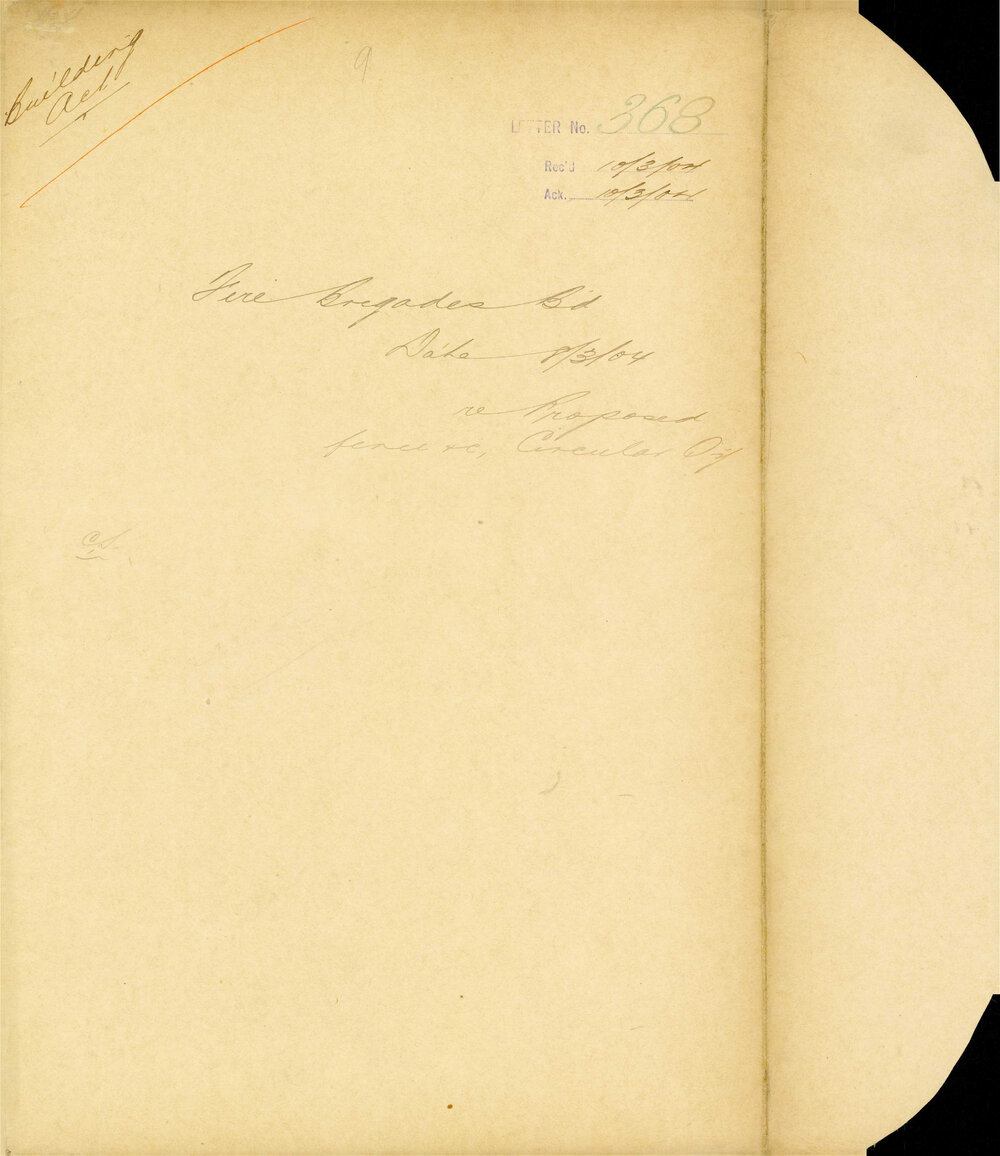 Building
Act
9
LETTER No. 368
Rec'd 10/3/04
Ack. 10/3/04
Fire Brigades B'd
Date 8/3/04
re Proposed
fence &c, Circular Qy
C.S.